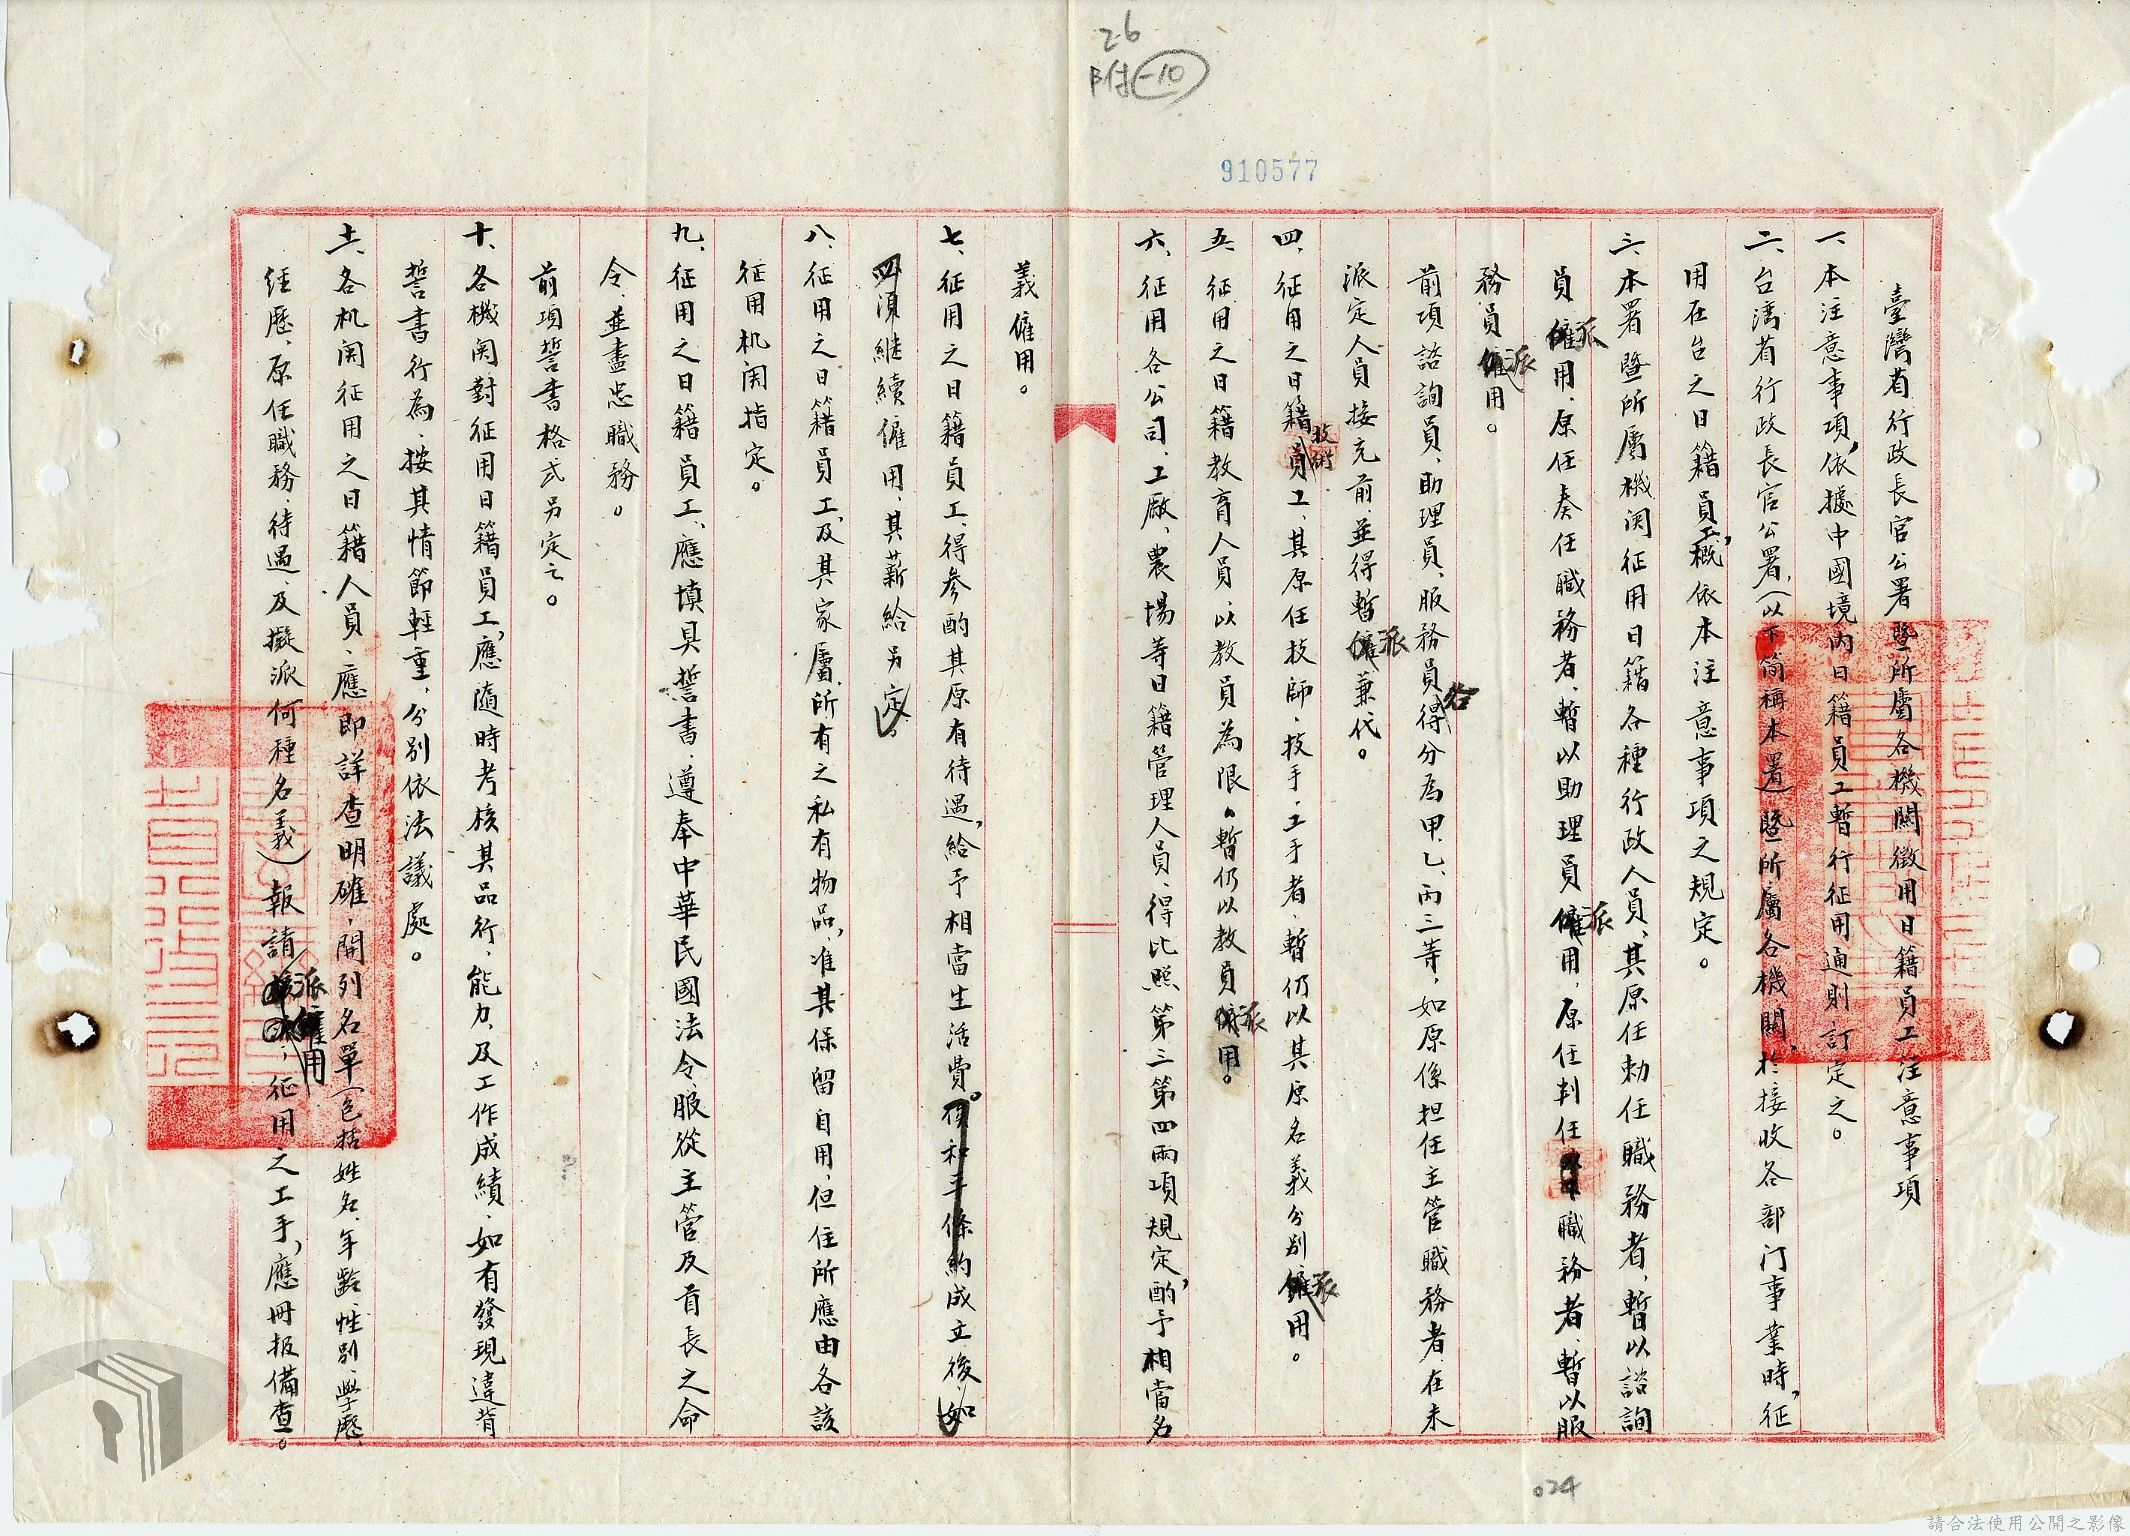 26
附-10
910577
臺灣省行政長官公署暨所屬各機關徵用日籍員工注意事項
一、本注意事項,依據中國境內日籍員工暫行征用通則訂定之。
二、台灣省行政長官公署,(以下簡稱本署)暨所屬各機關,於接收各部门事業時,征
用在台之日籍員工,概依本注意事項之規定。
三、本署暨所屬機関征用日籍各種行政人員、其原任勅任職務者,暫以諮詢
員派用、原任奏任職務者、暫以助理員派用,原任判任職務者、暫以服
務員派用。
前項諮詢員、助理員、服務員各得分為甲、乙、丙三等,如原係担任主管職務者、在未
派定人員接充前、並得暫派兼代。
四、征用之日籍技術員工、其原任技師、技手、工手者、暫仍以其原名義分別派用。
五、征用之日籍教育人員、以教員為限。暫仍以教員派用。
六、征用各公司、工廠、農場等日籍管理人員、得比照第三第四兩項規定,酌予相當名
義僱用。
七、征用之日籍員工、得参酌其原有待遇,給予相當生活費。後和平條約成立後、如
須継續僱用、其薪給另定。
八、征用之日籍員工,及其家屬,所有之私有物品,准其保留自用,但住所應由各該
征用机関指定。
九、征用之日籍員工、應填具誓書、遵奉中華民國法令、服從主管及首長之命
令、並盡忠職務。
前項誓書格式另定之。
十、各機関對征用日籍員工,應隨時考核其品行、能力、及工作成績、如有發現違背
誓書行為、按其情節輕重,分別依法議處。
十一、各机関征用之日籍人員、應即詳查明確,開列名單(包括姓名、年齡、性別、學歷、
经歷、原任職務待遇、及擬派何種名義)報請派僱用,征用之工手,應冊报備查。
024
請合法使用公開之影像